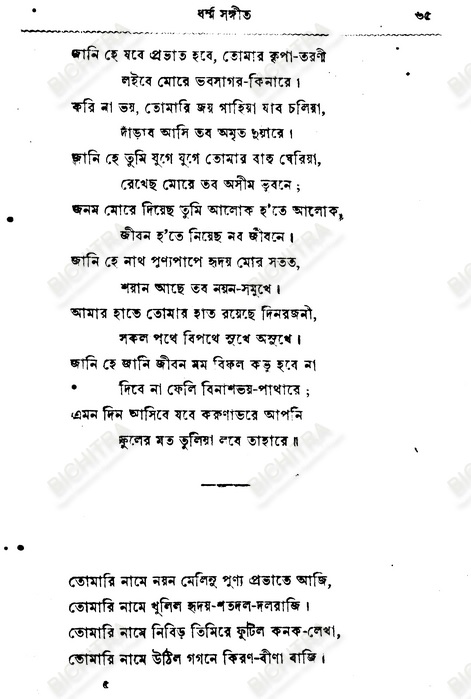 ধর্ম্ম সঙ্গীত ৩৫
জানি হে যবে প্রভাত হবে, তোমার কৃপা-তরণী
লইবে মোরে ভবসাগর-কিনারে।
করি না ভয়, তোমারি জয় গাহিয়া যাব চলিয়া,
দাঁড়াব আসি তব অমৃত দুয়ারে।
জানি হে তুমি যুগে যুগে তোমার বাহু ঘেরিয়া,
রেখেছ মোরে তব অসীম ভুবনে;
জনম মোরে দিয়েছ তুমি আলোক হ'তে আলোক,
জীবন হ'তে নিয়েছ নব জীবনে।
জানি হে নাথ পুণ্যপাপে হৃদয় মোর সতত,
শয়ান আছে তব নয়ন-সমুখে।
আমার হাতে তোমার হাত রয়েছে দিনরজনী,
সকল পথে বিপথে সুখে অসুখে।
জানি হে জানি জীবন মম বিফল কভু হবে না
দিবে না ফেলি বিনাশভয়-পাথারে;
এমন দিন আসিবে যবে করুণাভরে আপনি
ফুলের মত তুলিয়া লবে তাহারে॥
তোমারি নামে নয়ন মেলিনু পুণ্য প্রভাতে আজি,
তোমারি নামে খুলিল হৃদয়-শতদল-দলরাজি।
তোমারি নামে নিবিড় তিমিরে ফুটিল কনক-লেখা,
তোমারি নামে উঠিল গগনে কিরণ-বীণা বাজি।
৫
BICHITRA